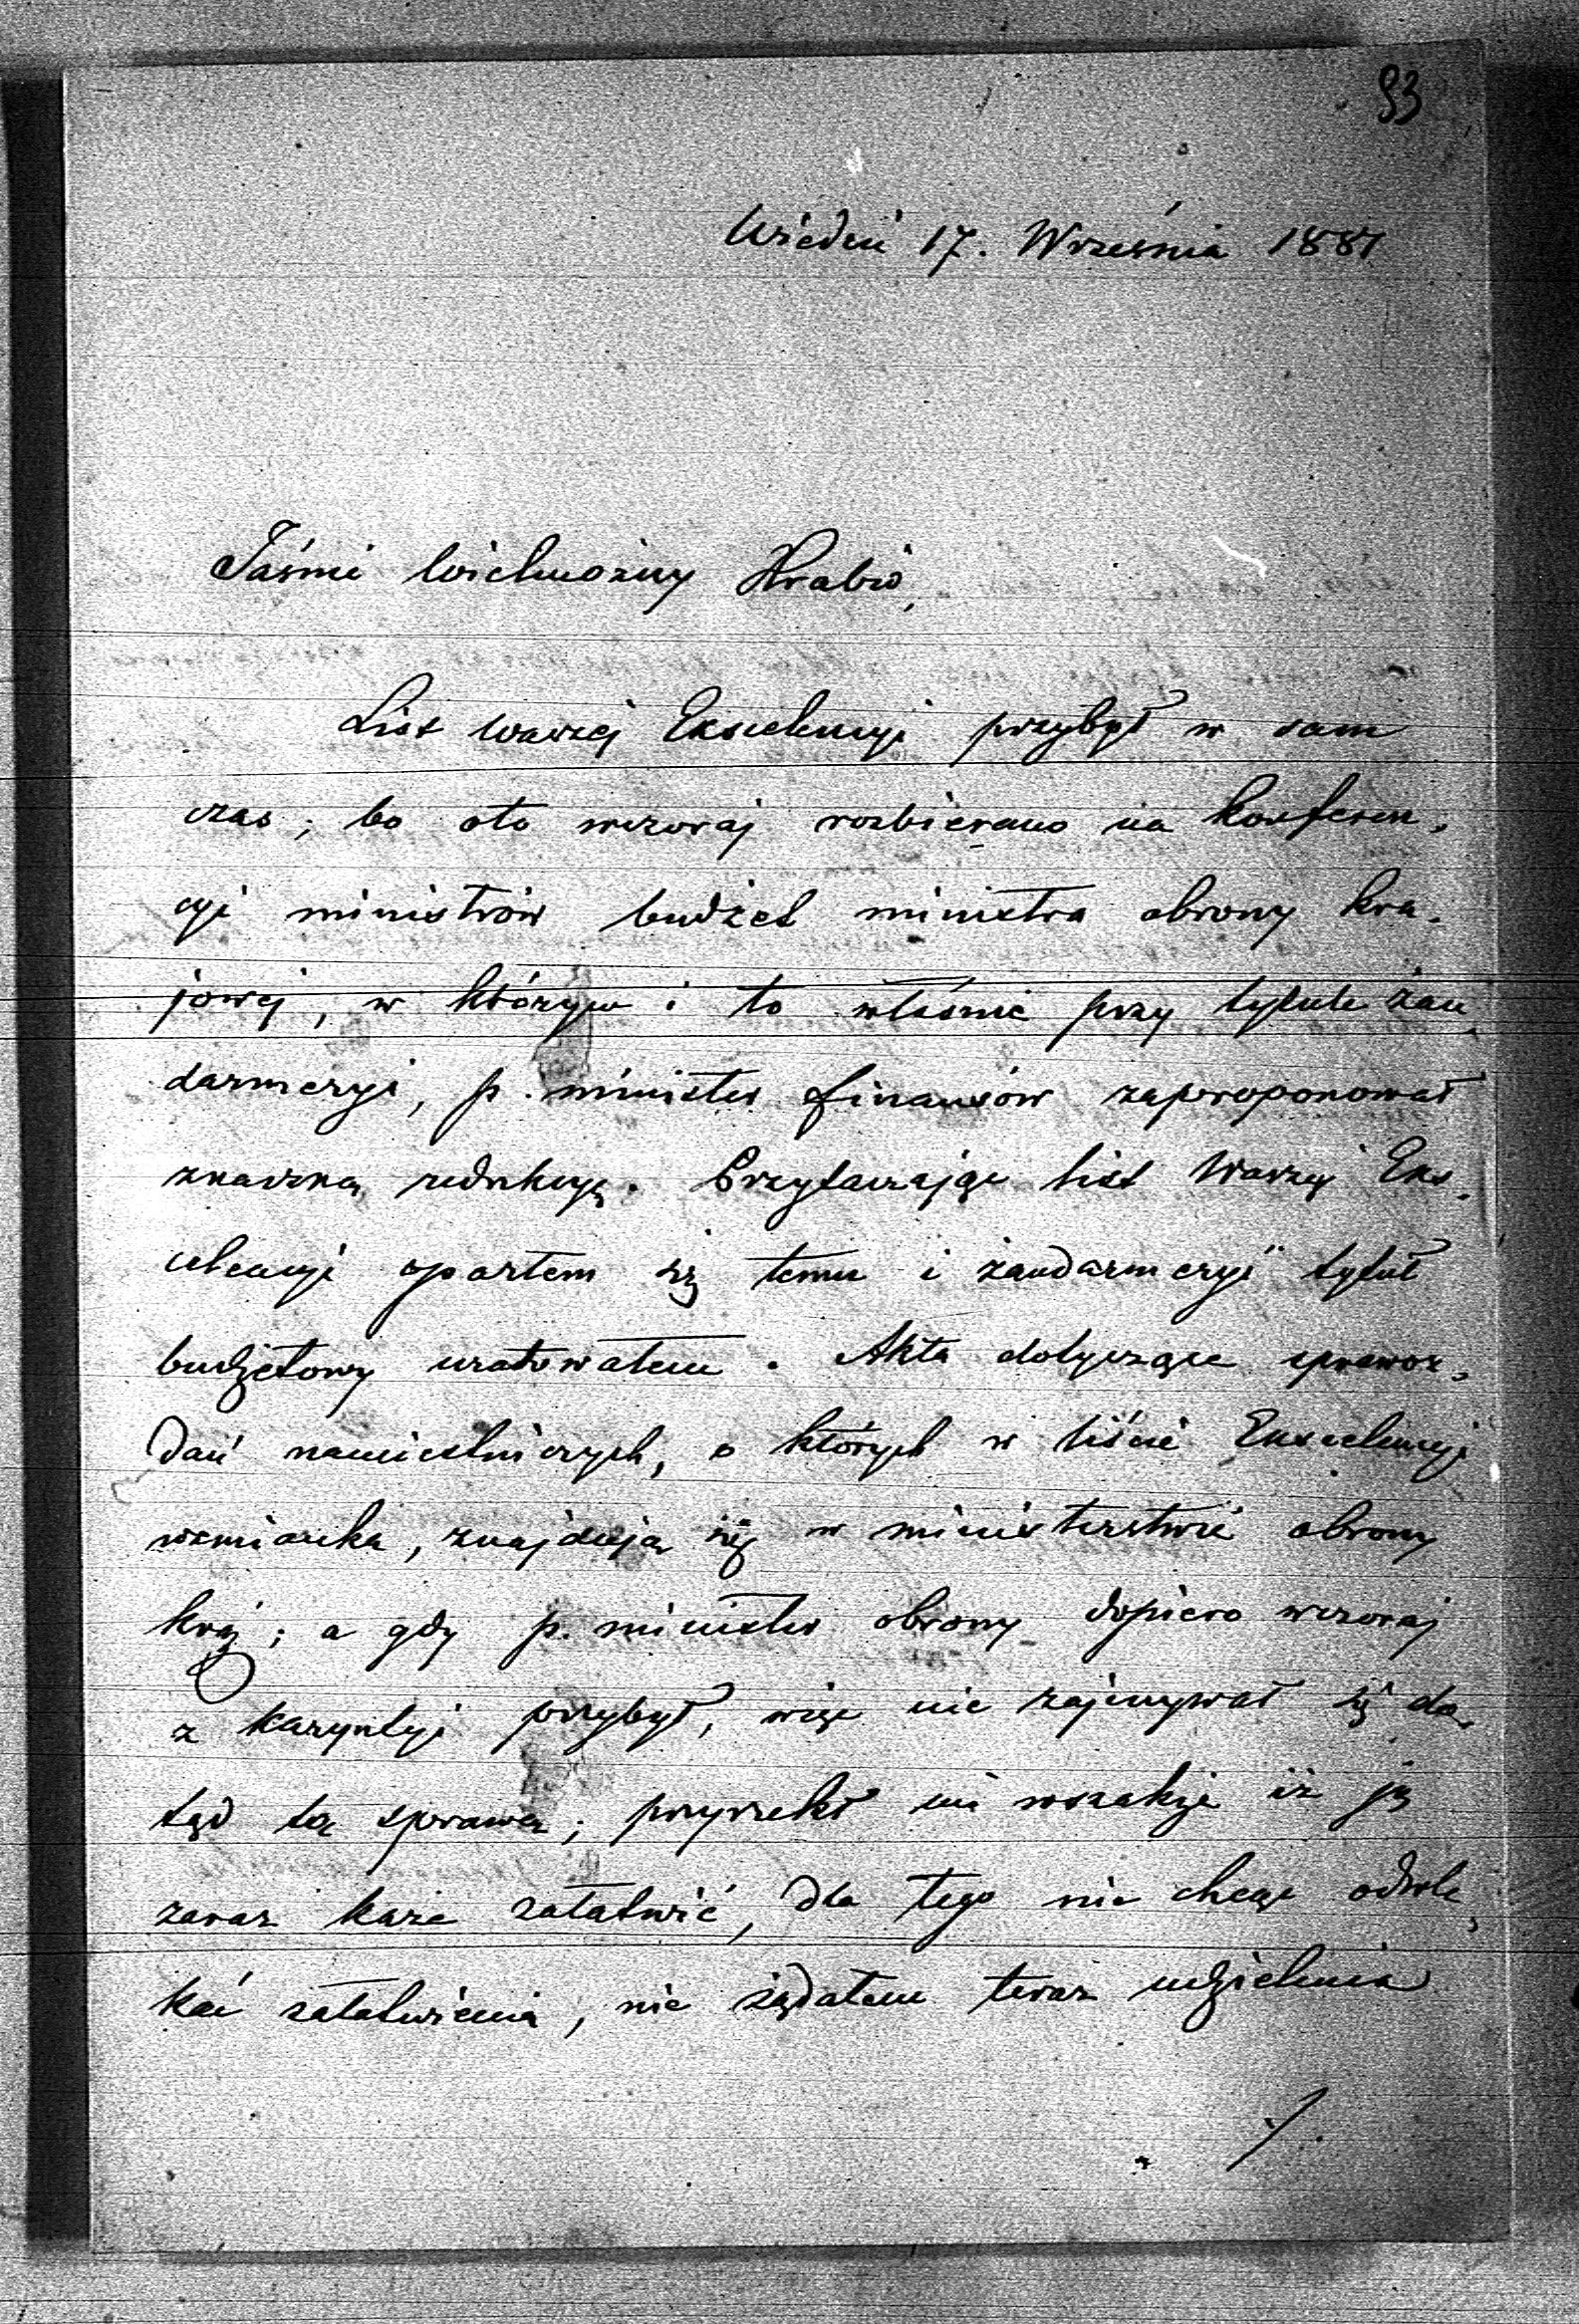 93
Wiedeń 17. Września 1881
Jaśnie Wielmożny Hrabio,
List Waszej Ekscelencyi przybył w sam
czas; bo oto wczoraj rozbierano na konferen-
cyi ministrów budżet ministra obrony kra-
jowej, w którym i to właśnie przy tytule żan-
darmeryi, p. minister finansów zaproponował
znaczną redukcyę. Przytaczając list Waszej Eks-
celencyi oparłem się temu i żandarmeryi tytuł
budżetowy uratowałem. Akta dotyczące sprawoz-
dań namiestniczych, o których w liście Ekscelencyi
wzmianka, znajdują się w ministerstwie obrony
kraj; a gdy p. minister obrony dopiero wczoraj
z Karyntyi przybył, więc nie zajmywał się do-
tąd tą sprawą; przyrzekł mi wszakże iż ją
zaraz każe załatwić, dla tego nie chcąc odwle-
kać załatwienia, nie żądałem teraz udzielenia
./.